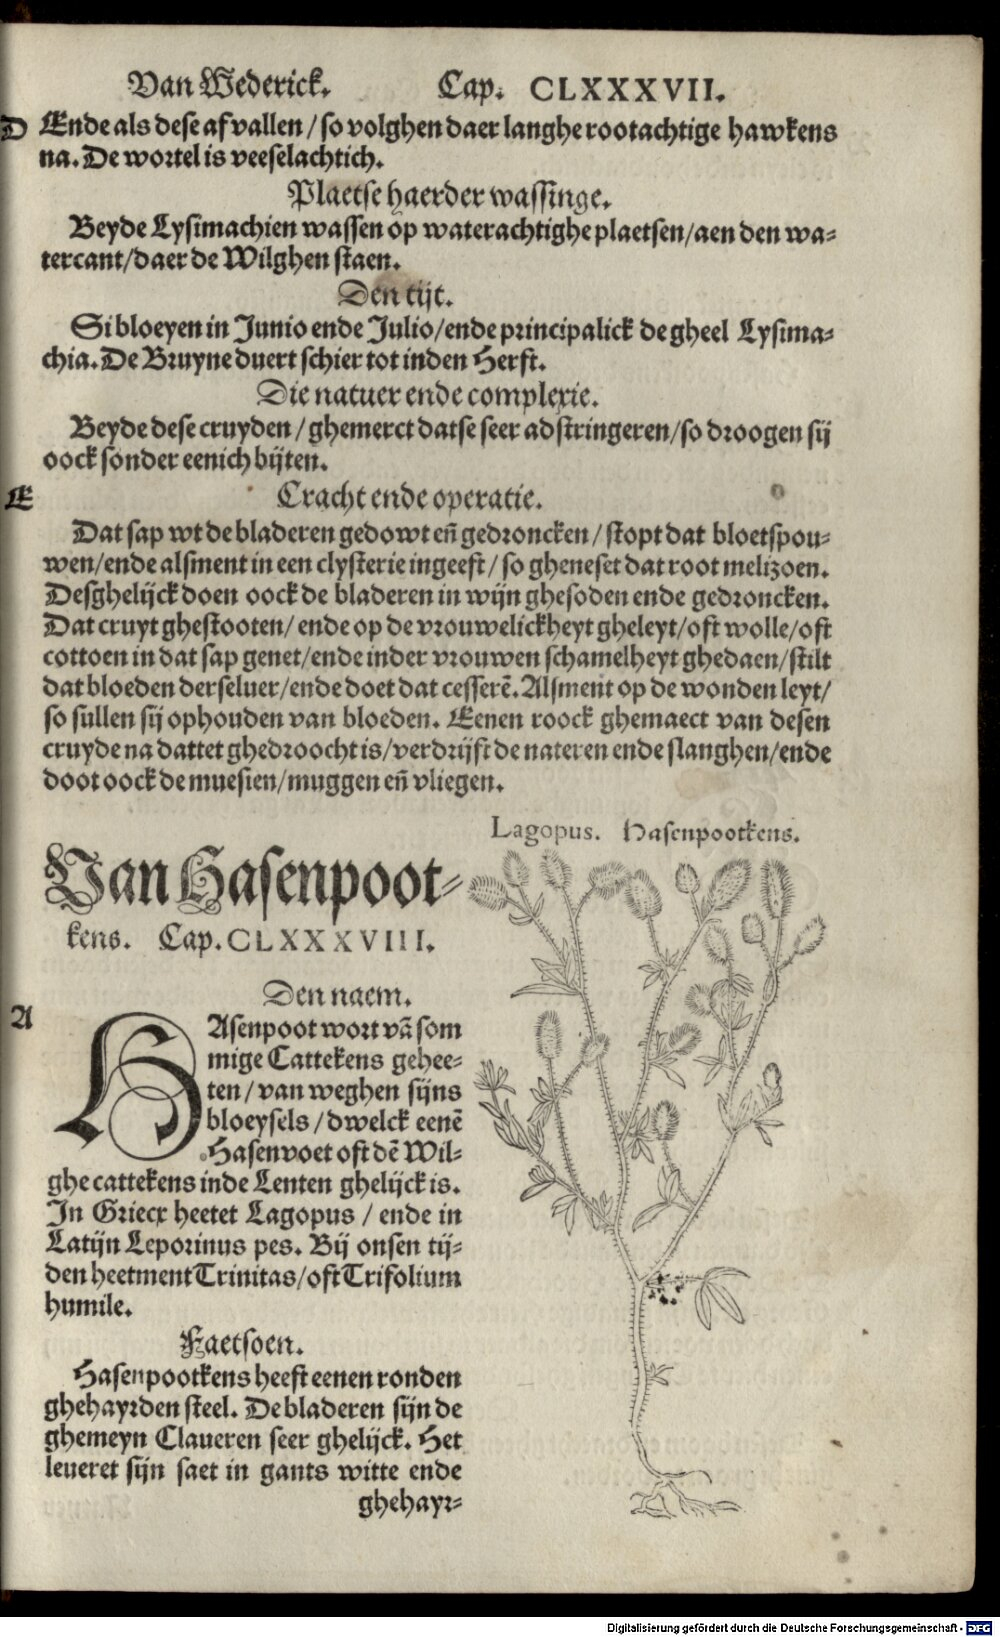 Van Wederick. Cap. CLXXXVII.
D Ende als dese af vallen / so volghen daer langhe rootachtige hawkens
na. De wortel is veeselachtich.
Plaetse haerder wassinge.
Beyde Lysimachien wassen op waterachtighe plaetsen/aen den wa-
tercant/daer de Wilghen staen.
Den tijt.
Si bloeyen in Junio ende Julio/ende principalick de gheel Lysima-
chia. De Bruyne duert schier tot inden Herfst.
Die natuer ende complexie.
Beyde dese cruyden / ghemerct datse seer adstringeren/so droogen sij
oock sonder eenich bijten.
E Cracht ende operatie.
Dat sap wt de bladeren gedowt eñ gedroncken / stopt dat bloetspou-
wen/ende alsment in een clysterie ingeeft/ so gheneset dat root melizoen.
Desghelijck doen oock de bladeren in wijn ghesoden ende gedroncken.
Dat cruyt ghestooten/ ende op de vrouwelickheyt gheleyt/oft wolle/oft
cottoen in dat sap genet/ende inder vrouwen schamelheyt ghedaen/stilt
dat bloeden der seluer/ende doet dat cesserē. Alsment op de wonden leyt/
so sullen sij ophouden van bloeden. Eenen roock ghemaect van desen
cruyde na dattet ghedroocht is/verdrijft de nateren ende slanghen/ende
doot oock de muesien/muggen eñ vliegen.
Lagopus. Hasenpootkens.
Van Hasenpoot-
kens. Cap. CLXXXVIII.
Den naem.
A HAsenpoot wort vā som
mige Cattekens gehee-
ten / van weghen sijns
bloeysels / dwelck eenē
Hasenvoet oft dē Wil-
ghe cattekens inde Lenten ghelijck is.
In Griecx heetet Lagopus / ende in
Latijn Leporinus pes. Bij onsen tij-
den heetment Trinitas/oft Trifolium
humile.
Faetsoen.
Hasenpootkens heeft eenen ronden
ghehayrden steel. De bladeren sijn de
ghemeyn Claueren seer ghelijck. Het
leueret sijn saet in gants witte ende
ghehayr-
Digitalisierung gefördert durch die Deutsche Forschungsgemeinschaft - DFG